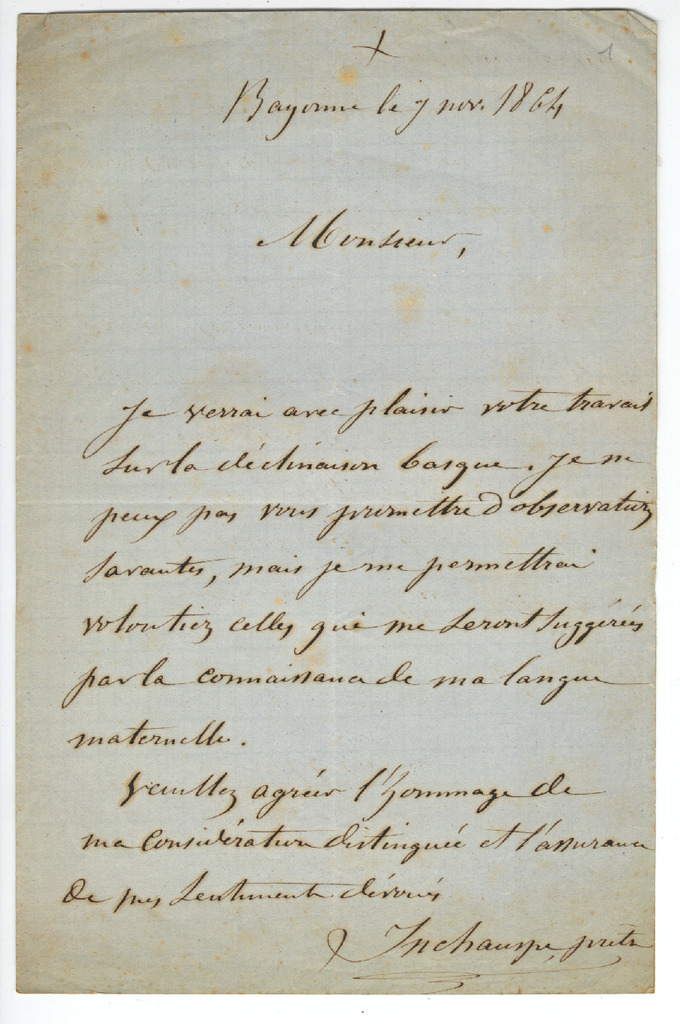 +
1
Bayonne le 7 nov. 1864
Monsieur,
Je verrai avec plaisir votre travail
sur la déclinaison basque. Je ne
peux pas vous promettre d'observations
savantes, mais je me permettrai
volontiers celles qui me seront suggérées
par la connaissance de ma langue
maternelle.
Veuillez agréer l'hommage de
ma considération distinguée et l'assurance
de mes sentiments dévoués
Inchauspe, prêtre